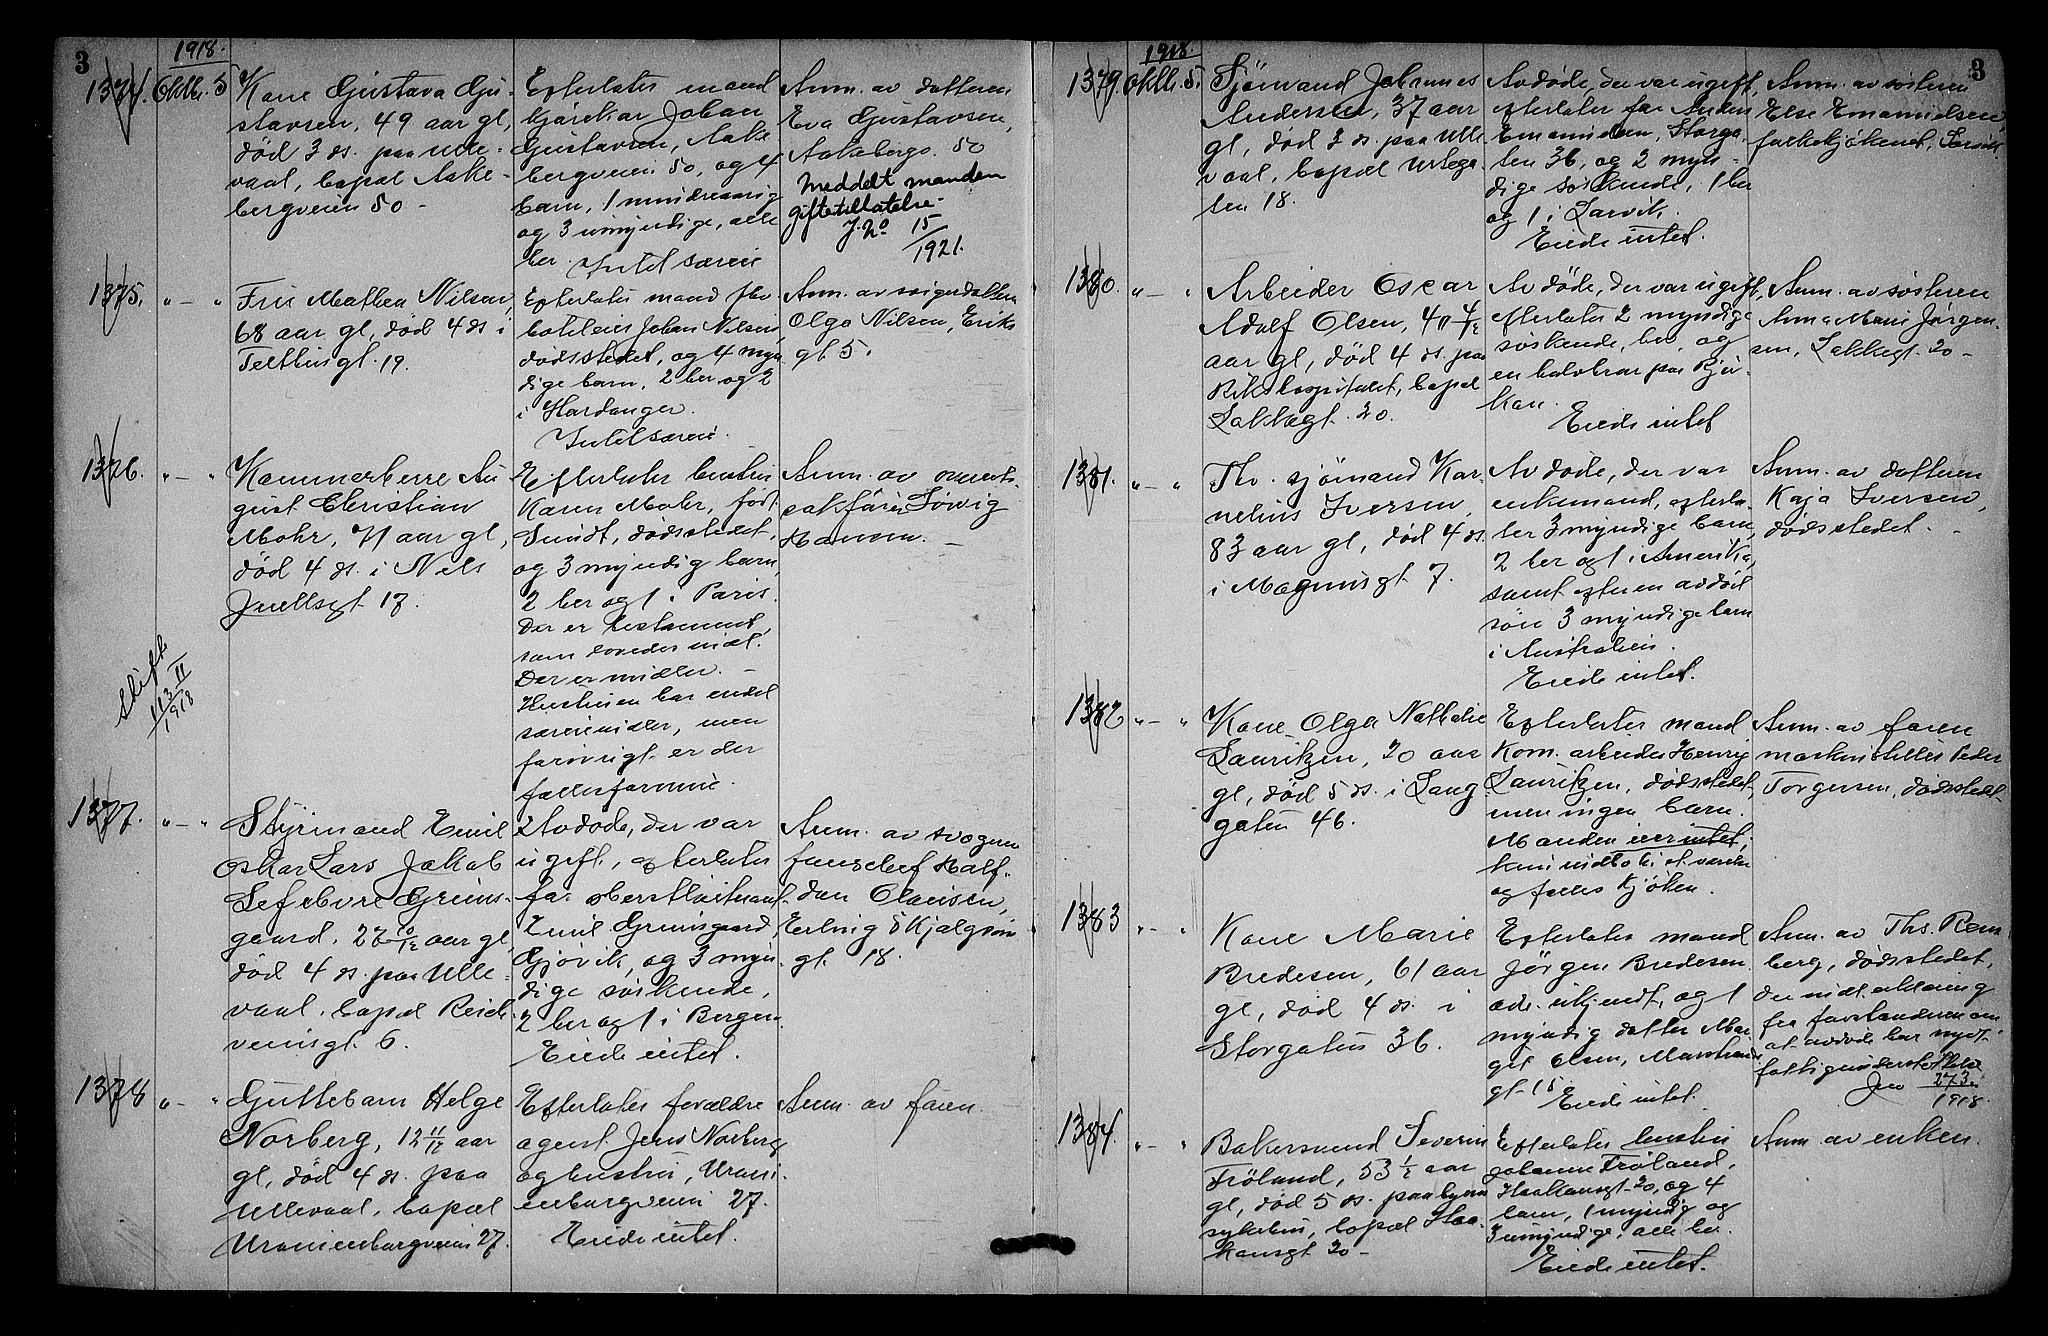 3
1918.
1374. Oktbr. 5
Kone Gustava Gu-
stavsen, 49 aar gl,
død 3 ds. paa Ulle-
vaal, bopæl Aake-
bergveien 50 -
Efterlater mand
kjørekar Johan
Gustavsen, Aake
bergveien 50, og 4
barn, 1 mindreaarig
og 3 umyndige, alle
her. Intet særeie
Anm. av datteren
Eva Gustavsen,
Aakebergv. 50
Meddelt manden
giftetillatelse -
J. No 15/1921.
1375. " — "
Fru Mathea Nilsen,
68 aar gl, død 4 ds i
Telthusgt. 19.
Efterlater mand
Johan Nilsen
dødsstedet, og 4 myn
dige barn, 2 her og 2
i Hardanger.
Intet særeie.
Anm. av svigerdatteren
Olga Nilsen, Eriks
gt 5.
1376. " — "
Kammerherre Au
gust Christian
Mohr, 71 aar gl,
død 4 ds. i Nels
Juellsgt 17.
Skifte
113 II
1918
Efterlater hustru
Karen Mohr, født
Sundt, dødsstedet,
og 3 myndig barn,
2 her og 1 i Paris.
Der er testament,
som lovedes indl.
Der er midler. -
Hustruen har endel
særeiemidler, men
forøvrigt er der
fælleseformue.
Anm. av overrets
sakfører Lövig
Hansen. -
1377. " — "
Styrmand Emil
Oskar Lars Jakob
Lefebvre Grims-
gaard, 27 10/12 aar gl,
død 4 ds. paa Ulle-
vaal, bopæl Reich
weinsgt. 6.
Avdøde, der var
ugift, efterlater
far oberstløitnant
Emil Grimsgaard,
Gjøvik, og 3 myn
dige søskende,
2 her og 1 i Bergen.
Eiede intet.
Anm. av svogeren
Half-
dan Clausen,
Erling Skjalgsøn
gt. 18.
1378 " — "
Guttebarn Helge
Norberg, 12 11/12 aar
gl, død 4 ds. paa
Ullevaal, bopæl
Uranienborgveien 27.
Efterlater forældre
agent Jens Norberg
og hustru, Urani-
enborgveien 27.
Eiede intet.
Anm. av faren.
3
1918.
1379. Oktbr. 5.
Sjømand Johannes
Andersen, 37 aar
gl, død 3 ds. paa Ulle-
vaal, bopæl Urtega-
ten 18.
Avdøde, der var ugift,
efterlater far Anders
Emanuelsen, Storga-
ten 36, og 2 myn-
dige søskende, 1 her
og 1 i Larvik.
Eiede intet.
Anm. av søsteren
Else Emanuelsen
folkekjøkenet, Larvik.
1380. " — "
Arbeider Oscar
Adolf Olsen, 40 4/12
aar gl, død 4 ds. paa
Rikshospitalet, bopæl
Lakkegt. 20.
Avdøde, der var ugift,
efterlater 2 myndige
søskende, her, og
en halvbror paa Rju-
kan.
Eiede intet
Anm. av søsteren
Anna Marie Jørgen-
sen, Lakkegt. 20 -
1381. " — "
Fhv. sjømand Kar-
nelius Iversen,
83 aar gl, død 4 ds.
i Magnusgt 7.
Avdøde, der var
enkemand, efterla-
ter 3 myndige barn,
2 her og 1 i Amerika,
samt efter en avdød
søn 3 myndige barn
i Australien.
Eiede intet.
Anm. av datteren
Kaja Iversen,
dødsstedet. -
1382 " — "
Kone Olga Nathalie
Lauritzen, 20 aar
gl, død 5 ds. i Lang
gaten 46.
Efterlater mand
Kom. arbeider Henry
Lauritzen, dødsstedet,
men ingen barn.
Manden eier intet,
kun indbo til et værelse
og fælles kjøken.
Anm. av faren
Peder
Torgersen, dødsstedet -
1383 " — "
Kone Marie
Bredesen, 61 aar
gl, død 4 ds. i
Storgaten 36.
Efterlater mand
Jörgen Bredesen
adr. ukjendt, og 1
myndig datter Mar
git Olsen, Marstrands
gt. 15.
Eiede intet.
Anm. av Ths. Rem
berg, dødsstedet,
der indl. erklæring
fra forstanderen om
at avdøde har nydt
fattigunderstøttelse
Jno 273/1918.
1384. " — "
Bakersvend Severin
Fröland, 53 1/2 aar
gl, død 5 ds. paa byens
sykehus, bopæl Haa-
konsgt 20 -
Efterlater hustru
Johanne Fröland,
Haakonsgt. 20, og 4
barn, 1 myndig og
3 umyndige, alle her.
Eiede intet.
Anm. av enken.